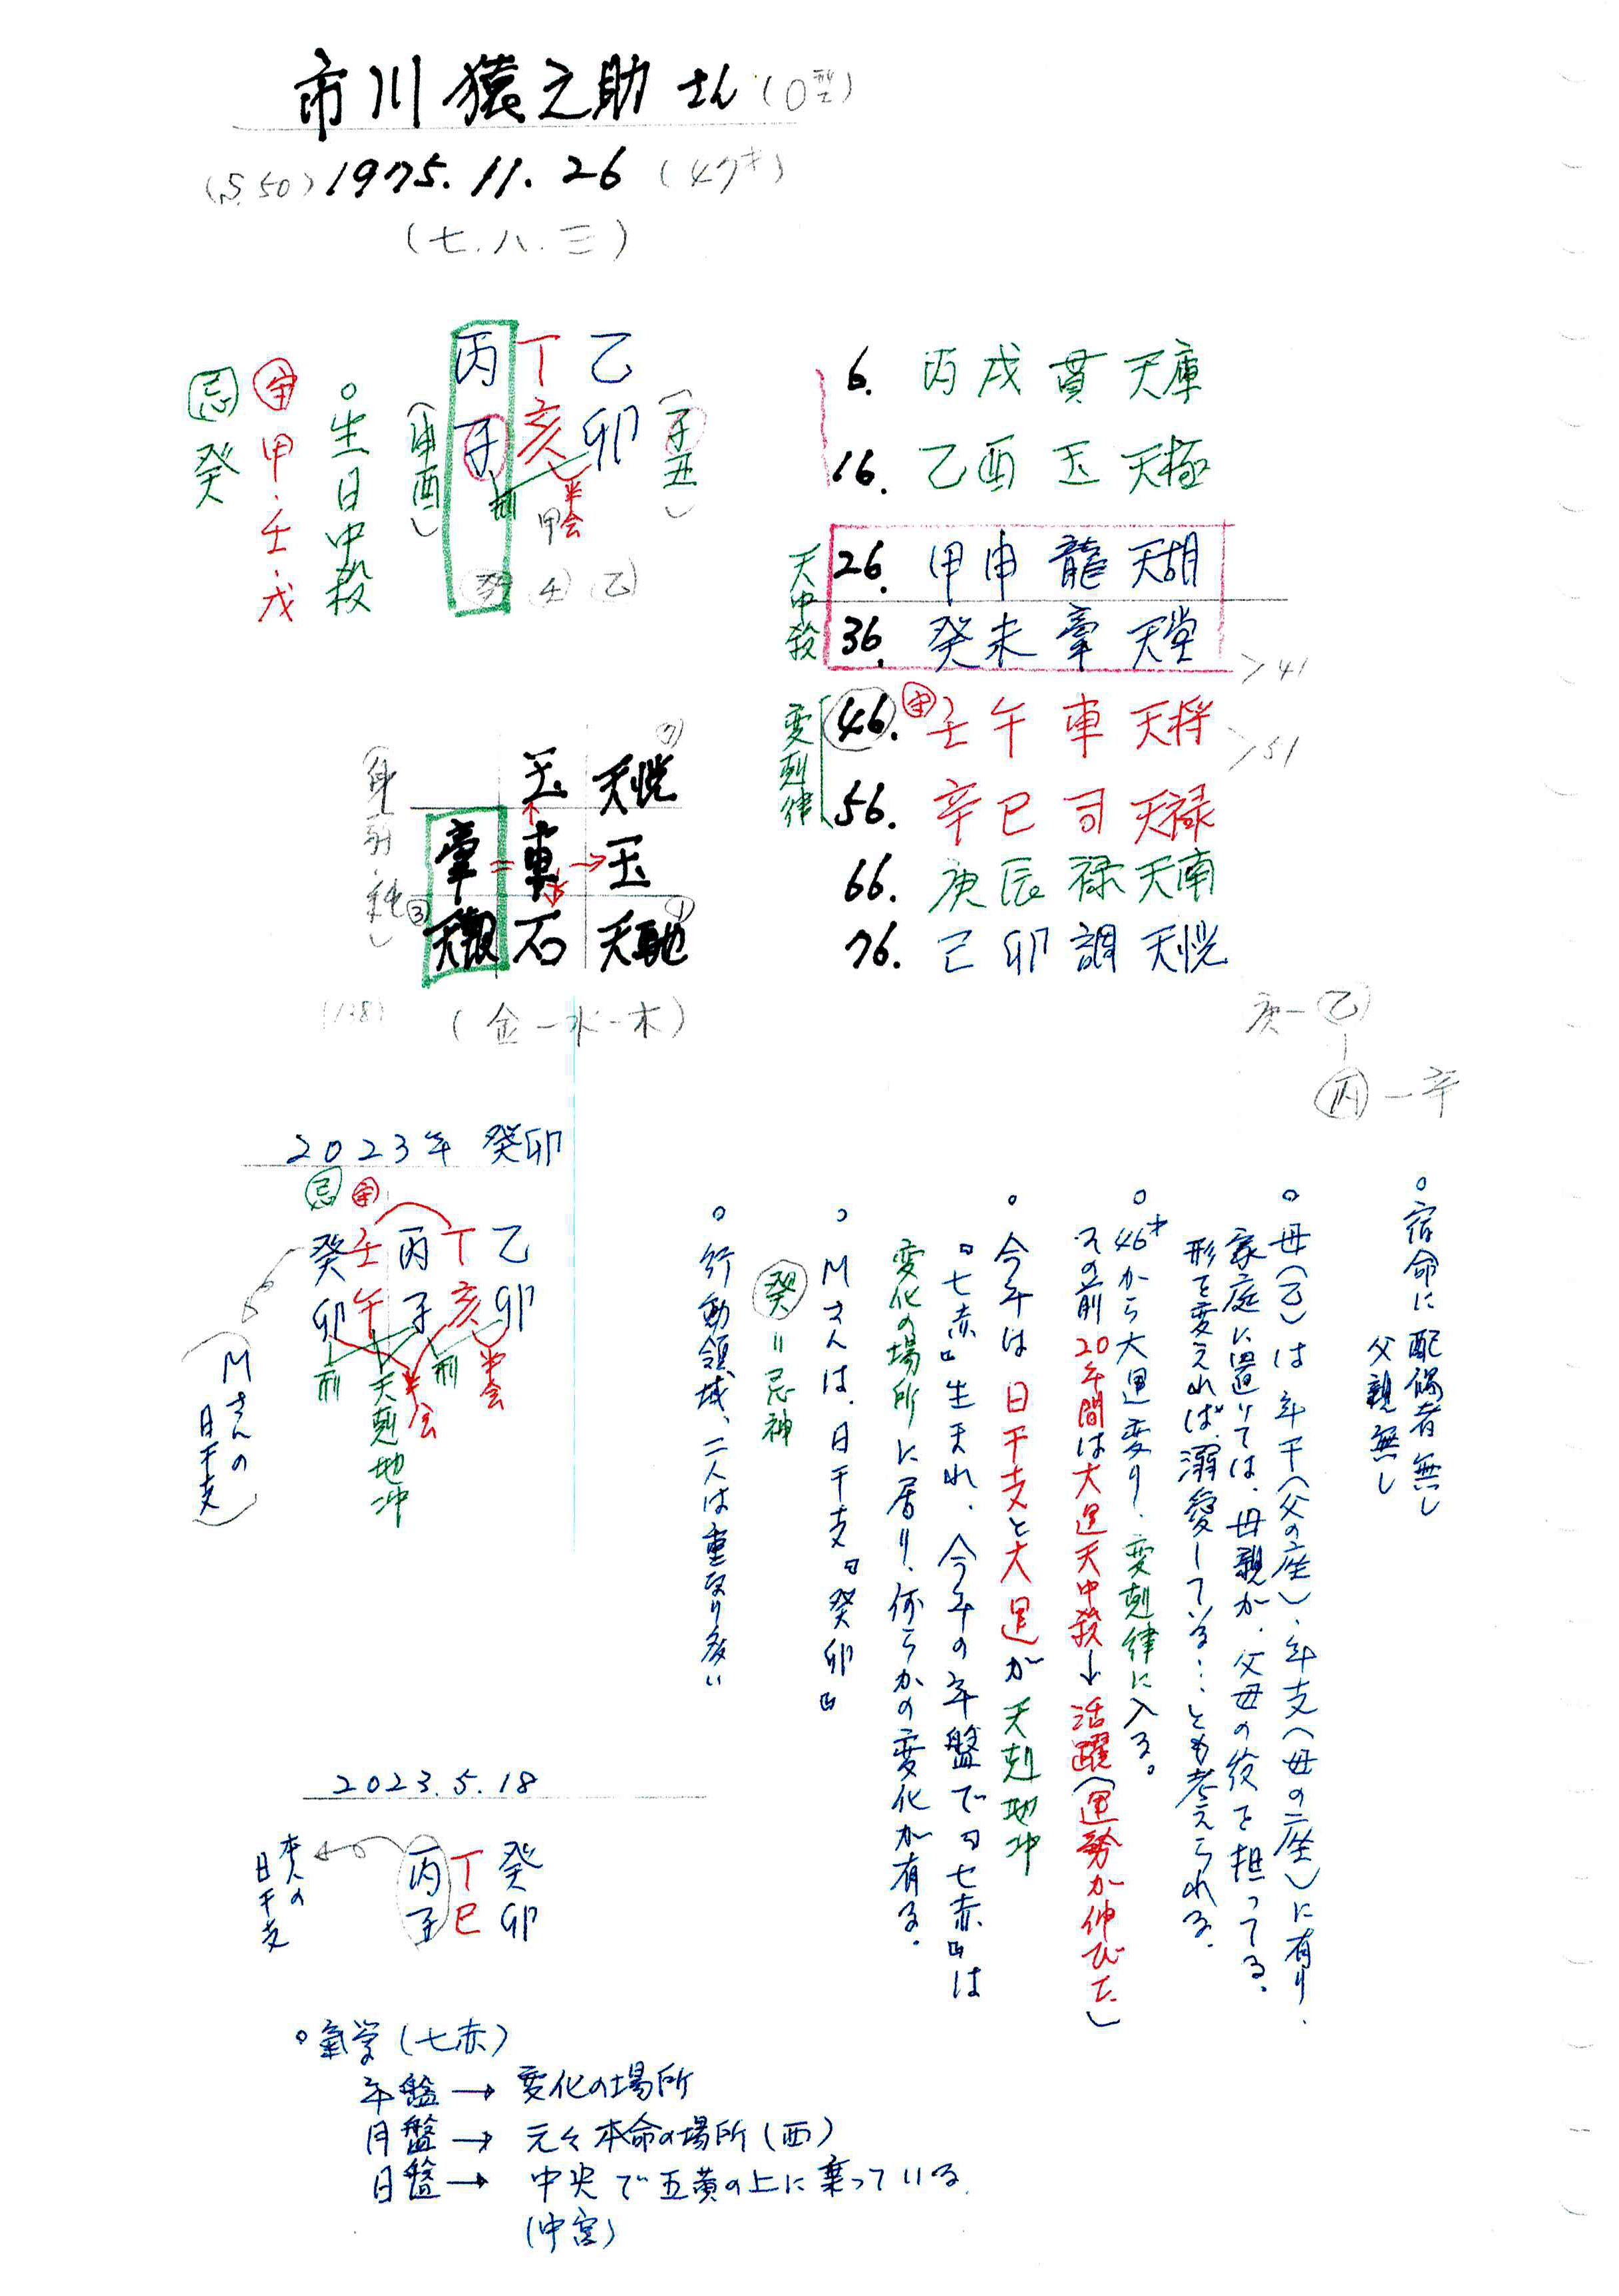 市川猿之助さん(O型)
(S.50) 1975.11.26 (47才)
(七.八.三)
丙丁乙
子亥卯
(申酉)
(子丑)
刑
半会
甲
癸 壬 乙
○生日中殺
㊪甲・壬・戊
忌 癸
6. 丙戌 貫 天庫
16. 乙酉 玉 天極
天中殺
26. 甲申 龍 天胡
36. 癸未 牽 天堂
>41
変剋律
46. ㊪ 壬午 車 天将
>51
56. 辛巳 司 天禄
66. 庚辰 禄 天南
76. 己卯 調 天恍
玉 天恍
牽 = 車 → 玉
③ 天報 石 天馳
(金-水-木)
庚-乙
丙-辛
2023年 癸卯
忌 ㊪
癸壬丙丁乙
卯午子亥卯
刑
天剋地冲
半会
刑
半会
(Mさんの
日干支)
○宿命に配偶者無し
父親無し
○母(乙)は年干(父の座)、年支(母の座)に有り、
家庭に置いては、母親が、父母の役を担ってる。
形を変えれば、溺愛している…とも考えられる。
○46才から大運変り、変剋律に入る。
その前20年間は大運天中殺→活躍(運勢が伸びた)
○今年は日干支と大運が天剋地冲
『七赤』生まれ、今年の年盤で『七赤』は
変化の場所に居り、何らかの変化が有る。
○Mさんは、日干支『癸卯』
癸=忌神
○行動領域、二人は重なり多い
2023.5.18
丙丁癸
子巳卯
本人の
日干支
○氣学(七赤)
年盤→ 変化の場所
月盤→ 元々本命の場所(西)
日盤→ 中央で五黄の上に乗っている。
(中宮)